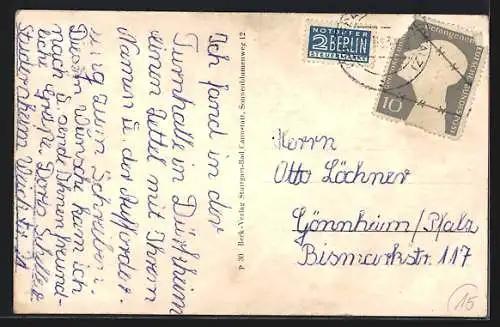 Ich fand in der
Turnhalle in Dürkheim
einen Zettel mit Ihrem
Namen u. der Aufforde-
rung zum Schreiben.
Diesem Wunsche kam ich
nach u. sende Ihnen freund-
liche Grüße Doris
Studentenheim
P 30 Beek-Verlag Stuttgart-Bad Cannstatt, Sonnenblumenweg 12
NOTOPFER
2 BERLIN
STEUERMARKE
Gefangenen
DEUTSCHE BUNDESPOST
10
Herrn
Otto Löchner
Gönnheim/Pfalz
Bismarkstr. 117
15